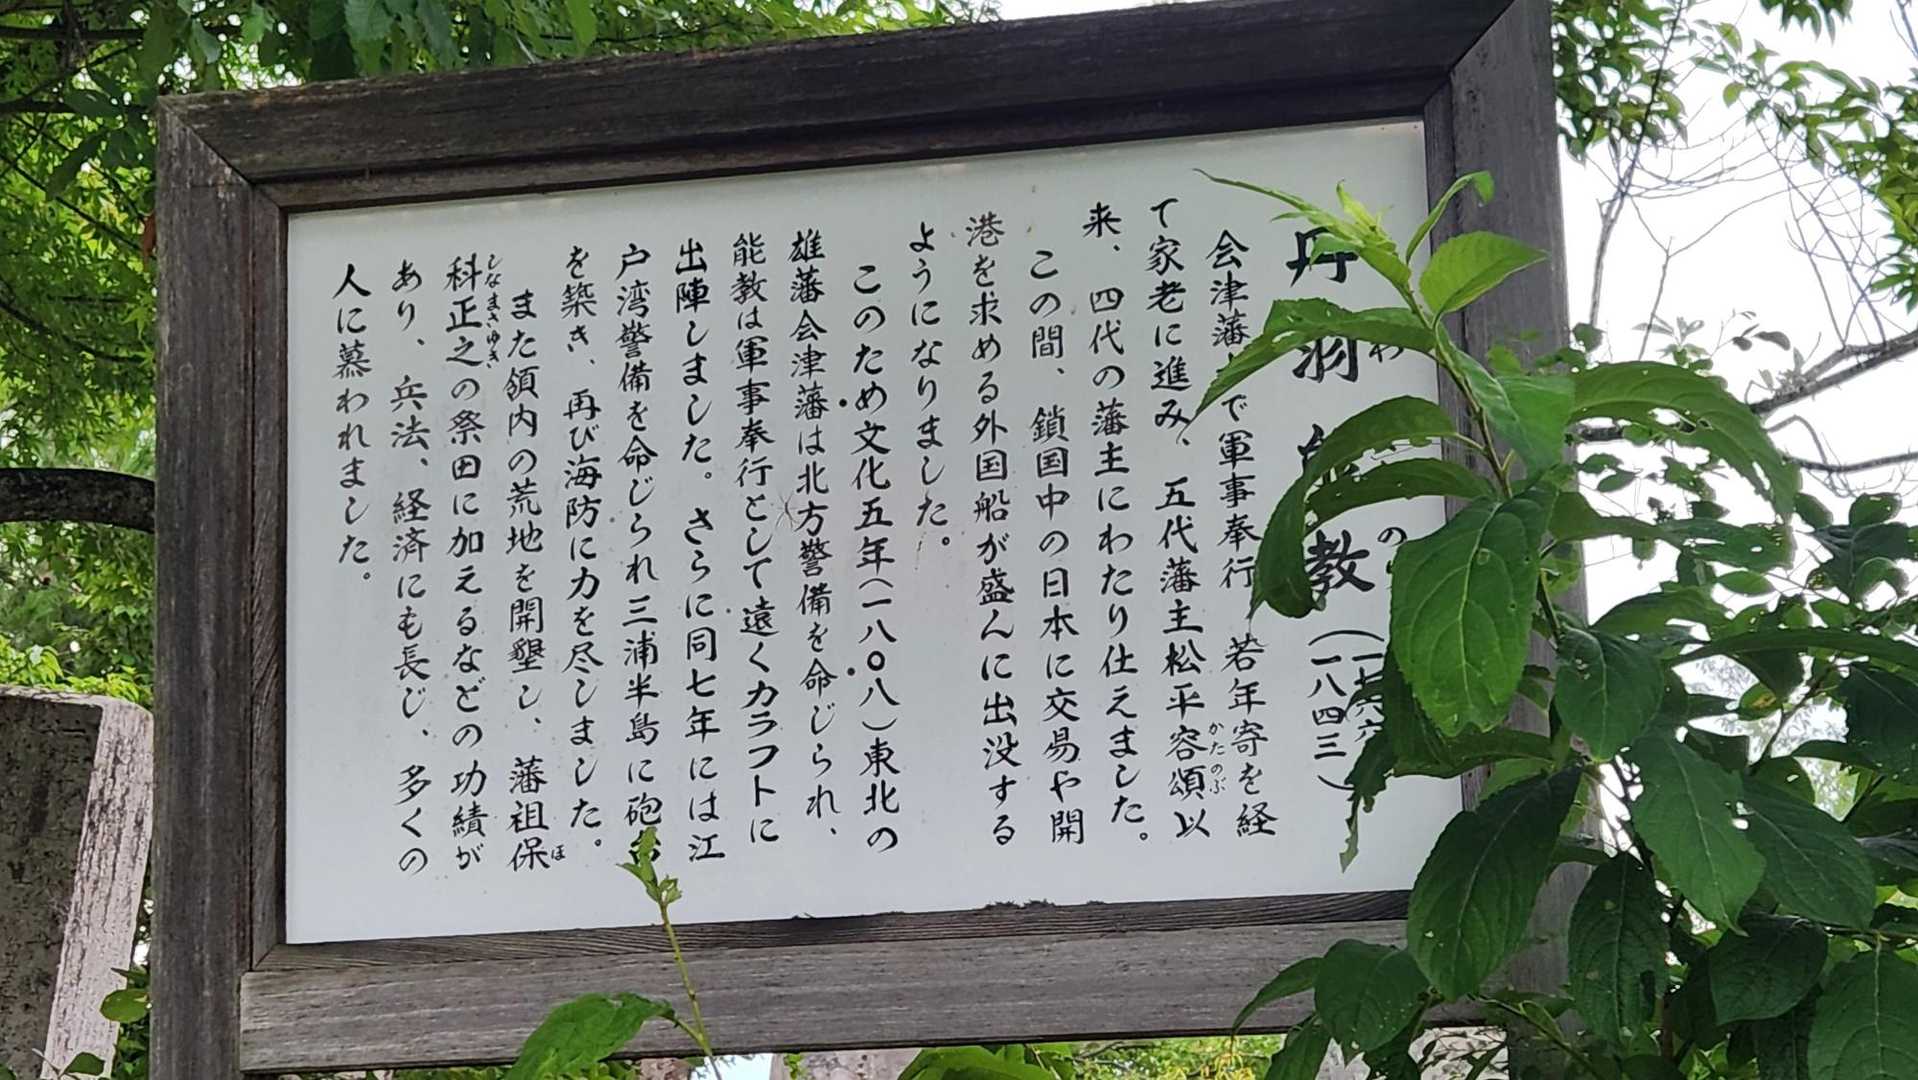 丹羽能教
（一七六六
（一八四三）
会津藩で軍事奉行 若年寄を経
て家老に進み、五代藩主松平容頌以
来、四代の藩主にわたり仕えました。
この間、鎖国中の日本に交易や開
港を求める外国船が盛んに出没する
ようになりました。
このため文化五年（一八〇八）東北の
雄藩会津藩は北方警備を命じられ、
能教は軍事奉行として遠くカラフトに
出陣しました。さらに同七年には江
戸湾警備を命じられ三浦半島に砲台
を築き、再び海防に力を尽しました。
また領内の荒地を開墾し、藩祖保
科正之の祭田に加えるなどの功績が
あり、兵法、経済にも長じ、多くの
人に慕われました。